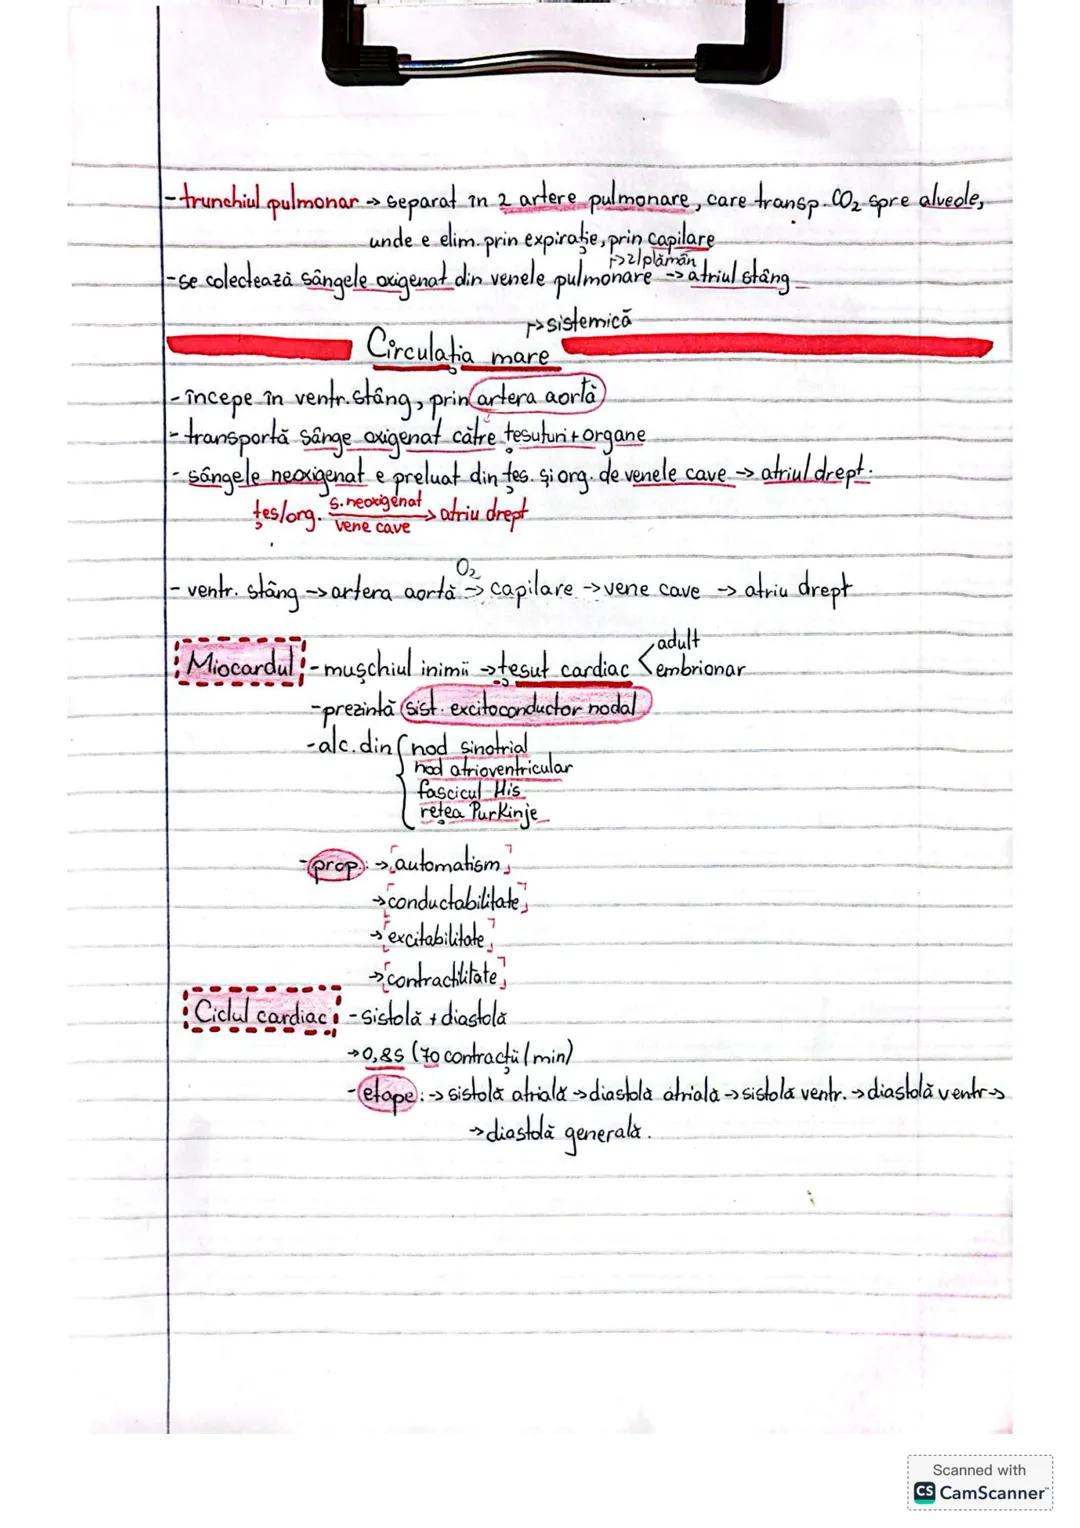 - trunchiul pulmonar → separat în 2 artere pulmonare, care transp. CO₂ spre alveole,
unde e elim. prin expirație, prin capilare
↳ 2/plămân
- se colectează sângele oxigenat din venele pulmonare → atriul stâng
↳ sistemică
Circulația mare
- începe în ventr. stâng, prin artera aortă
- transportă sânge oxigenat către țesuturi + organe
- sângele neoxigenat e preluat din țes. și org. de venele cave → atriul drept.
țes/org. s. neoxigenat / vene cave → atriu drept
- ventr. stâng → artera aortă O₂ → capilare → vene cave → atriu drept
Miocardul - mușchiul inimii → țesut cardiac < adult
embrionar
- prezintă sist. excitoconductor nodal
- alc. din { nod sinotrial
nod atrioventricular
fascicul His
rețea Purkinje
- prop.: → automatism
→ conductabilitate
→ excitabilitate
→ contractilitate
Ciclul cardiac - sistolă + diastolă
→ 0,8s (70 contracții/min)
- etape: → sistolă atrială → diastolă atrială → sistolă ventr. → diastolă ventr →
→ diastolă generală.
Scanned with
CS CamScanner